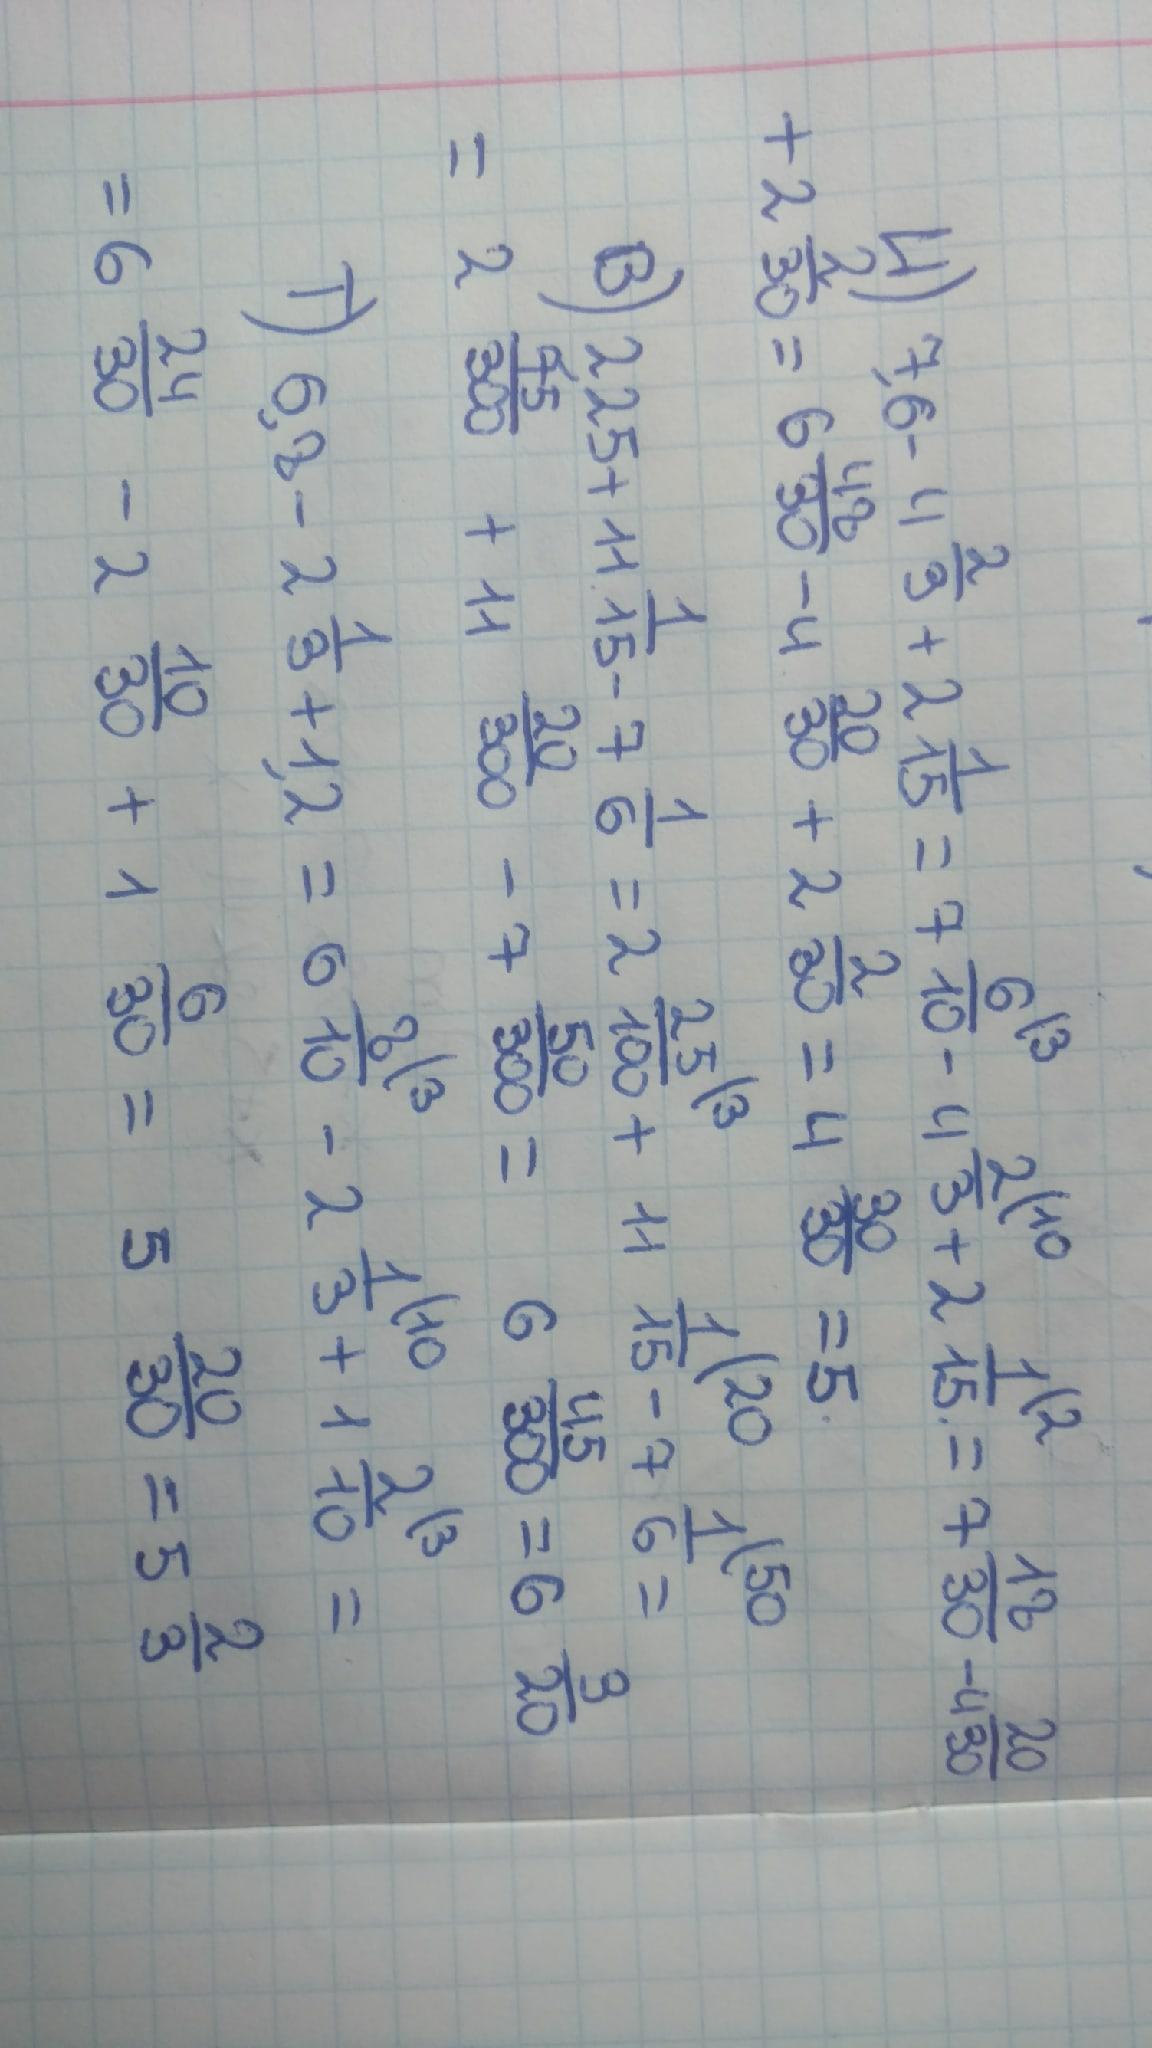 И) 7,6 - 4 2/3 + 2 1/15 = 7 6/10 (3 - 4 2/3 (10 + 2 1/15 (2 = 7 18/30 - 4 20/30
+ 2 2/30 = 6 48/30 - 4 20/30 + 2 2/30 = 4 30/30 = 5.
В) 2 25 + 11 1/15 - 7 1/6 = 2 25/100 (3 + 11 1/15 (20 - 7 1/6 (50 =
= 2 75/300 + 11 20/300 - 7 50/300 = 6 45/300 = 6 3/20
Т) 6,8 - 2 1/3 + 1,2 = 6 8/10 (3 - 2 1/3 (10 + 1 2/10 (3 =
= 6 24/30 - 2 10/30 + 1 6/30 = 5 20/30 = 5 2/3